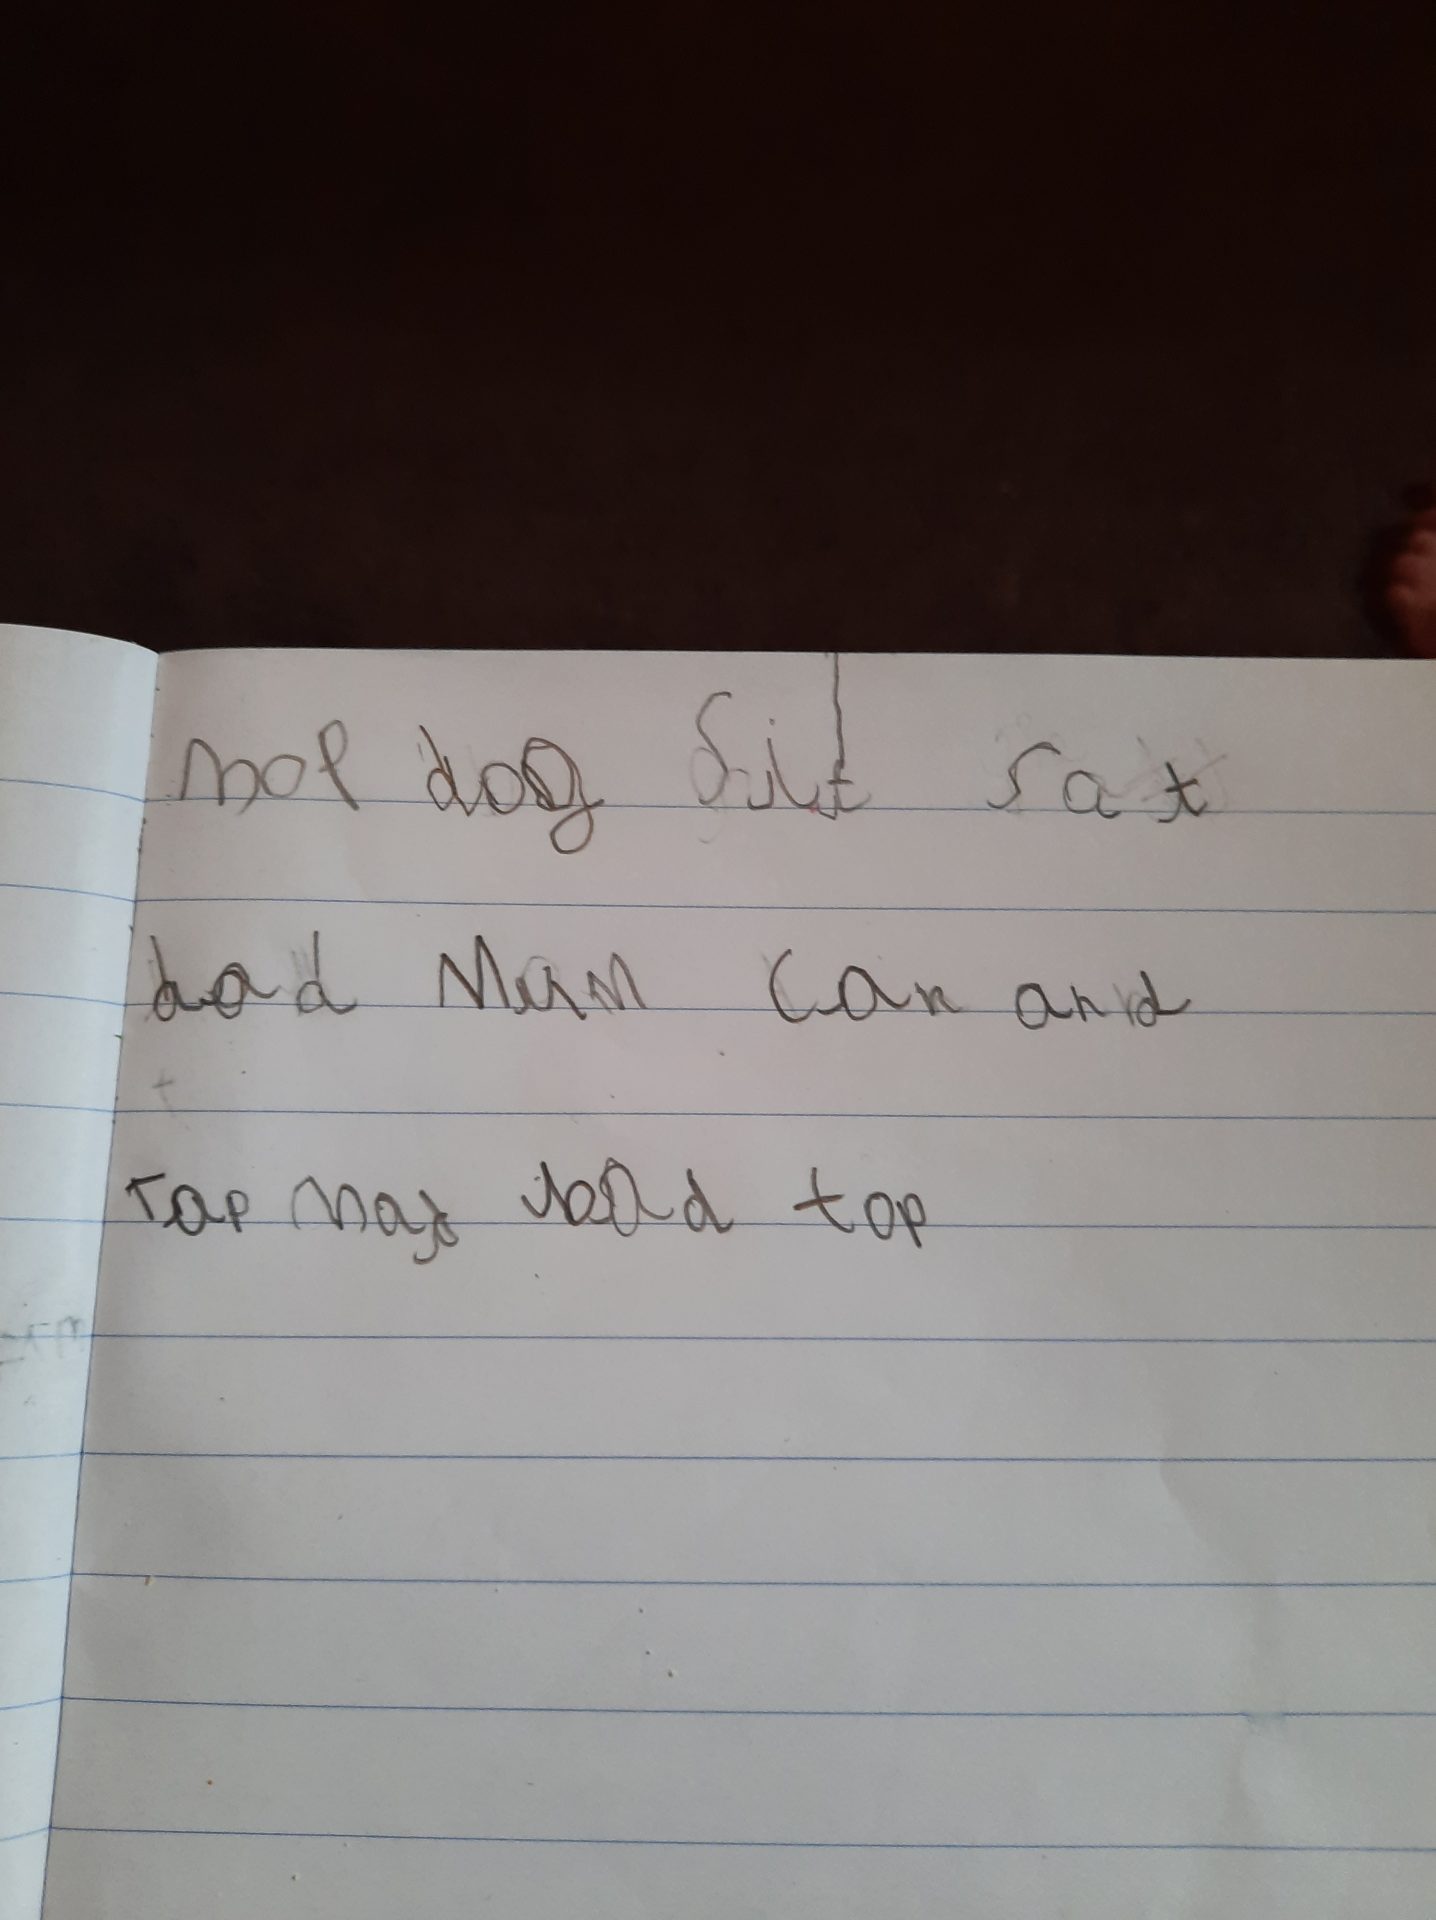 mop dog sit sat
dad Mam Can and
Tap Mat bad top